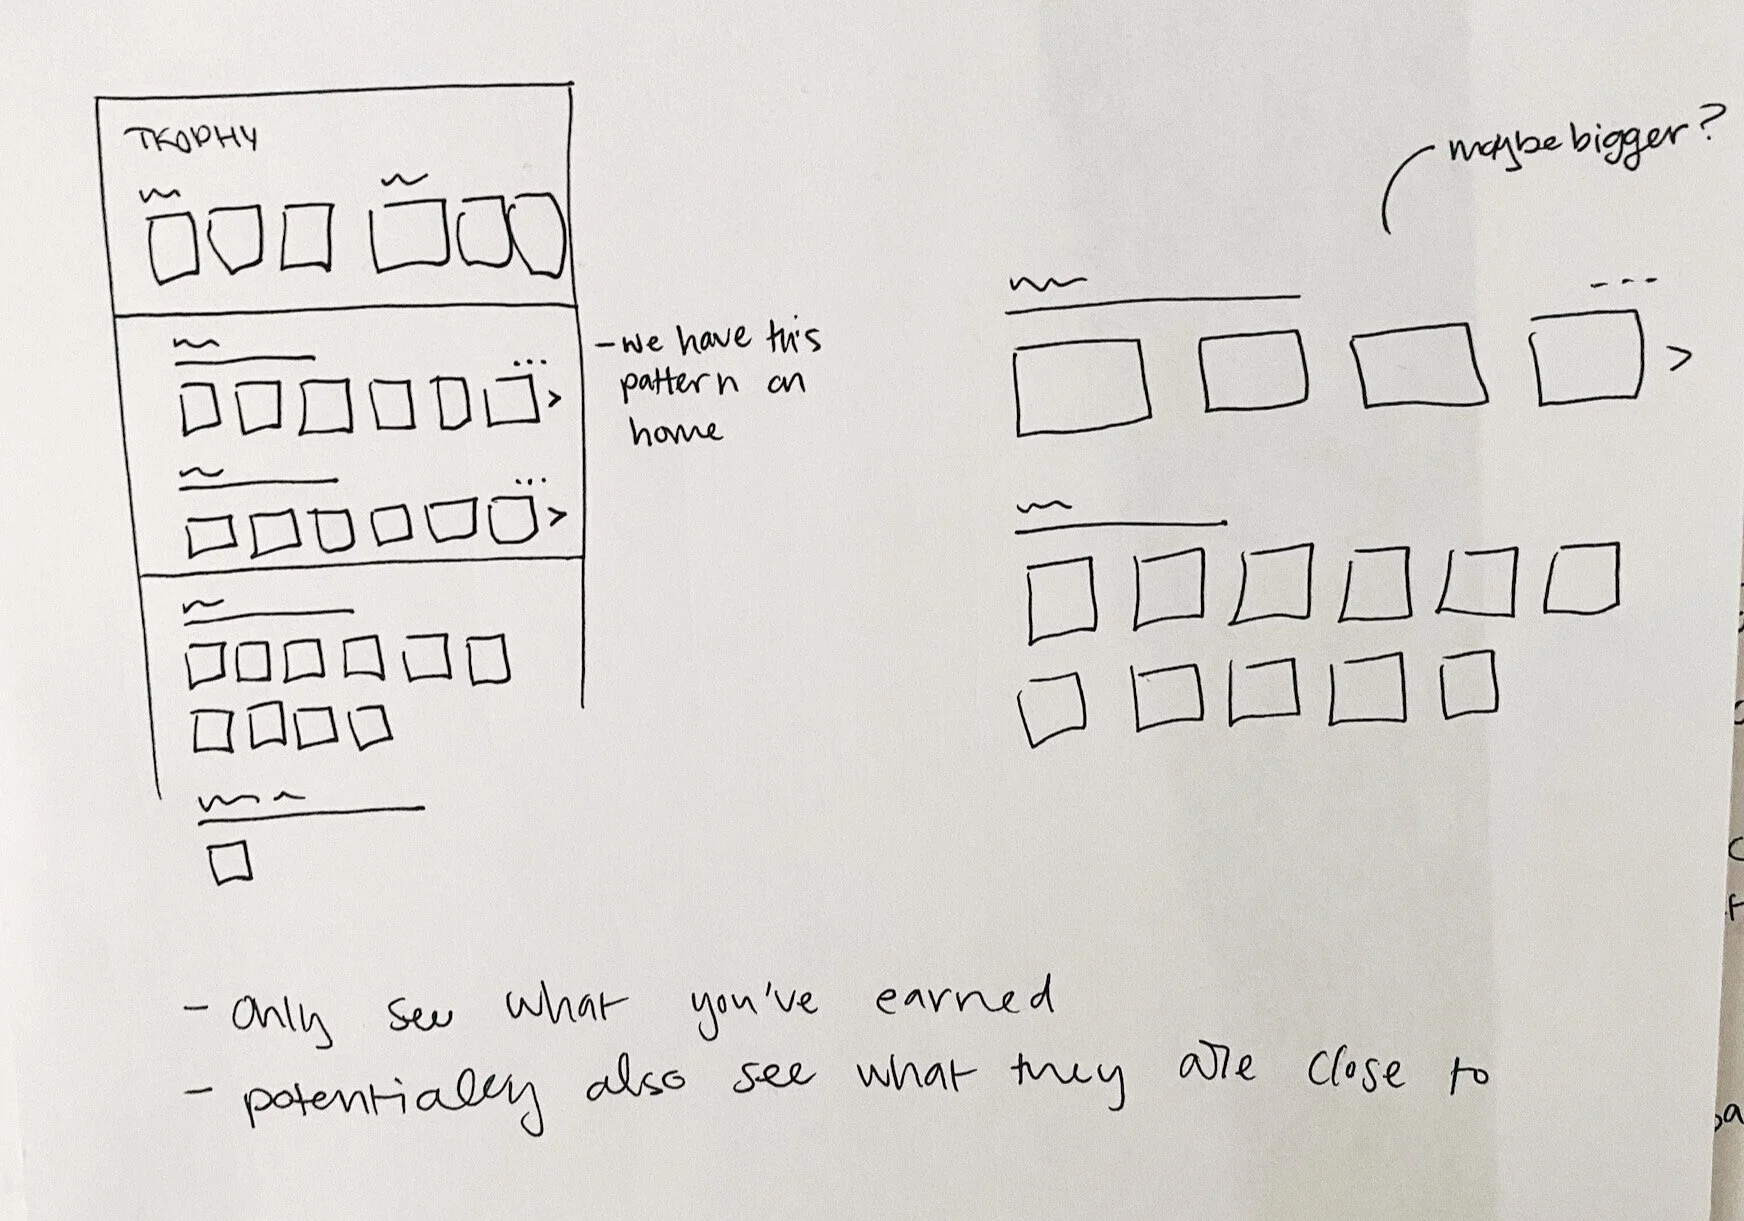 TROPHY
maybe bigger?
- we have this
pattern on
home
- only see what you've earned
- potentially also see what they are close to